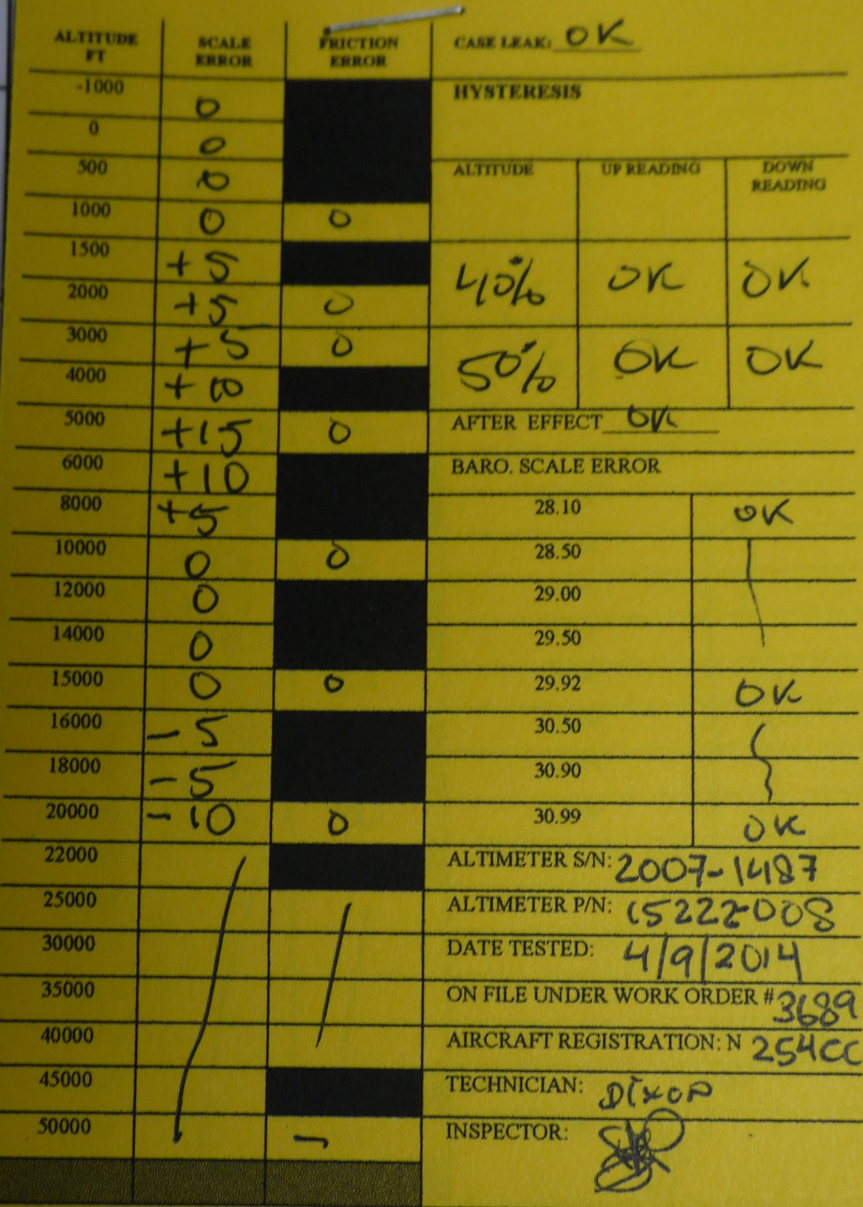 ALTITUDE FT SCALE ERROR FRICTION ERROR
-1000 0
0 0
500 0
1000 0 0
1500 +5
2000 +5 0
3000 +5 0
4000
5000 +15 0
6000 +10
8000 +5
10000 0 0
12000 0
14000 0
15000 0 0
16000 -5
18000 -5
20000 -10 0
22000
25000
30000
35000
40000
45000
50000
CASE LEAK: OK
HYSTERESIS
ALTITUDE UP READING DOWN READING
40% OK OK
50% OK OK
AFTER EFFECT OK
BARO. SCALE ERROR
28.10 OK
28.50
29.00
29.50
29.92 OK
30.50
30.90
30.99 OK
ALTIMETER S/N: 2007-1487
ALTIMETER P/N: 15222-008
DATE TESTED: 4/9/2014
ON FILE UNDER WORK ORDER # 3689
AIRCRAFT REGISTRATION: N 254CC
TECHNICIAN: Dixon
INSPECTOR: